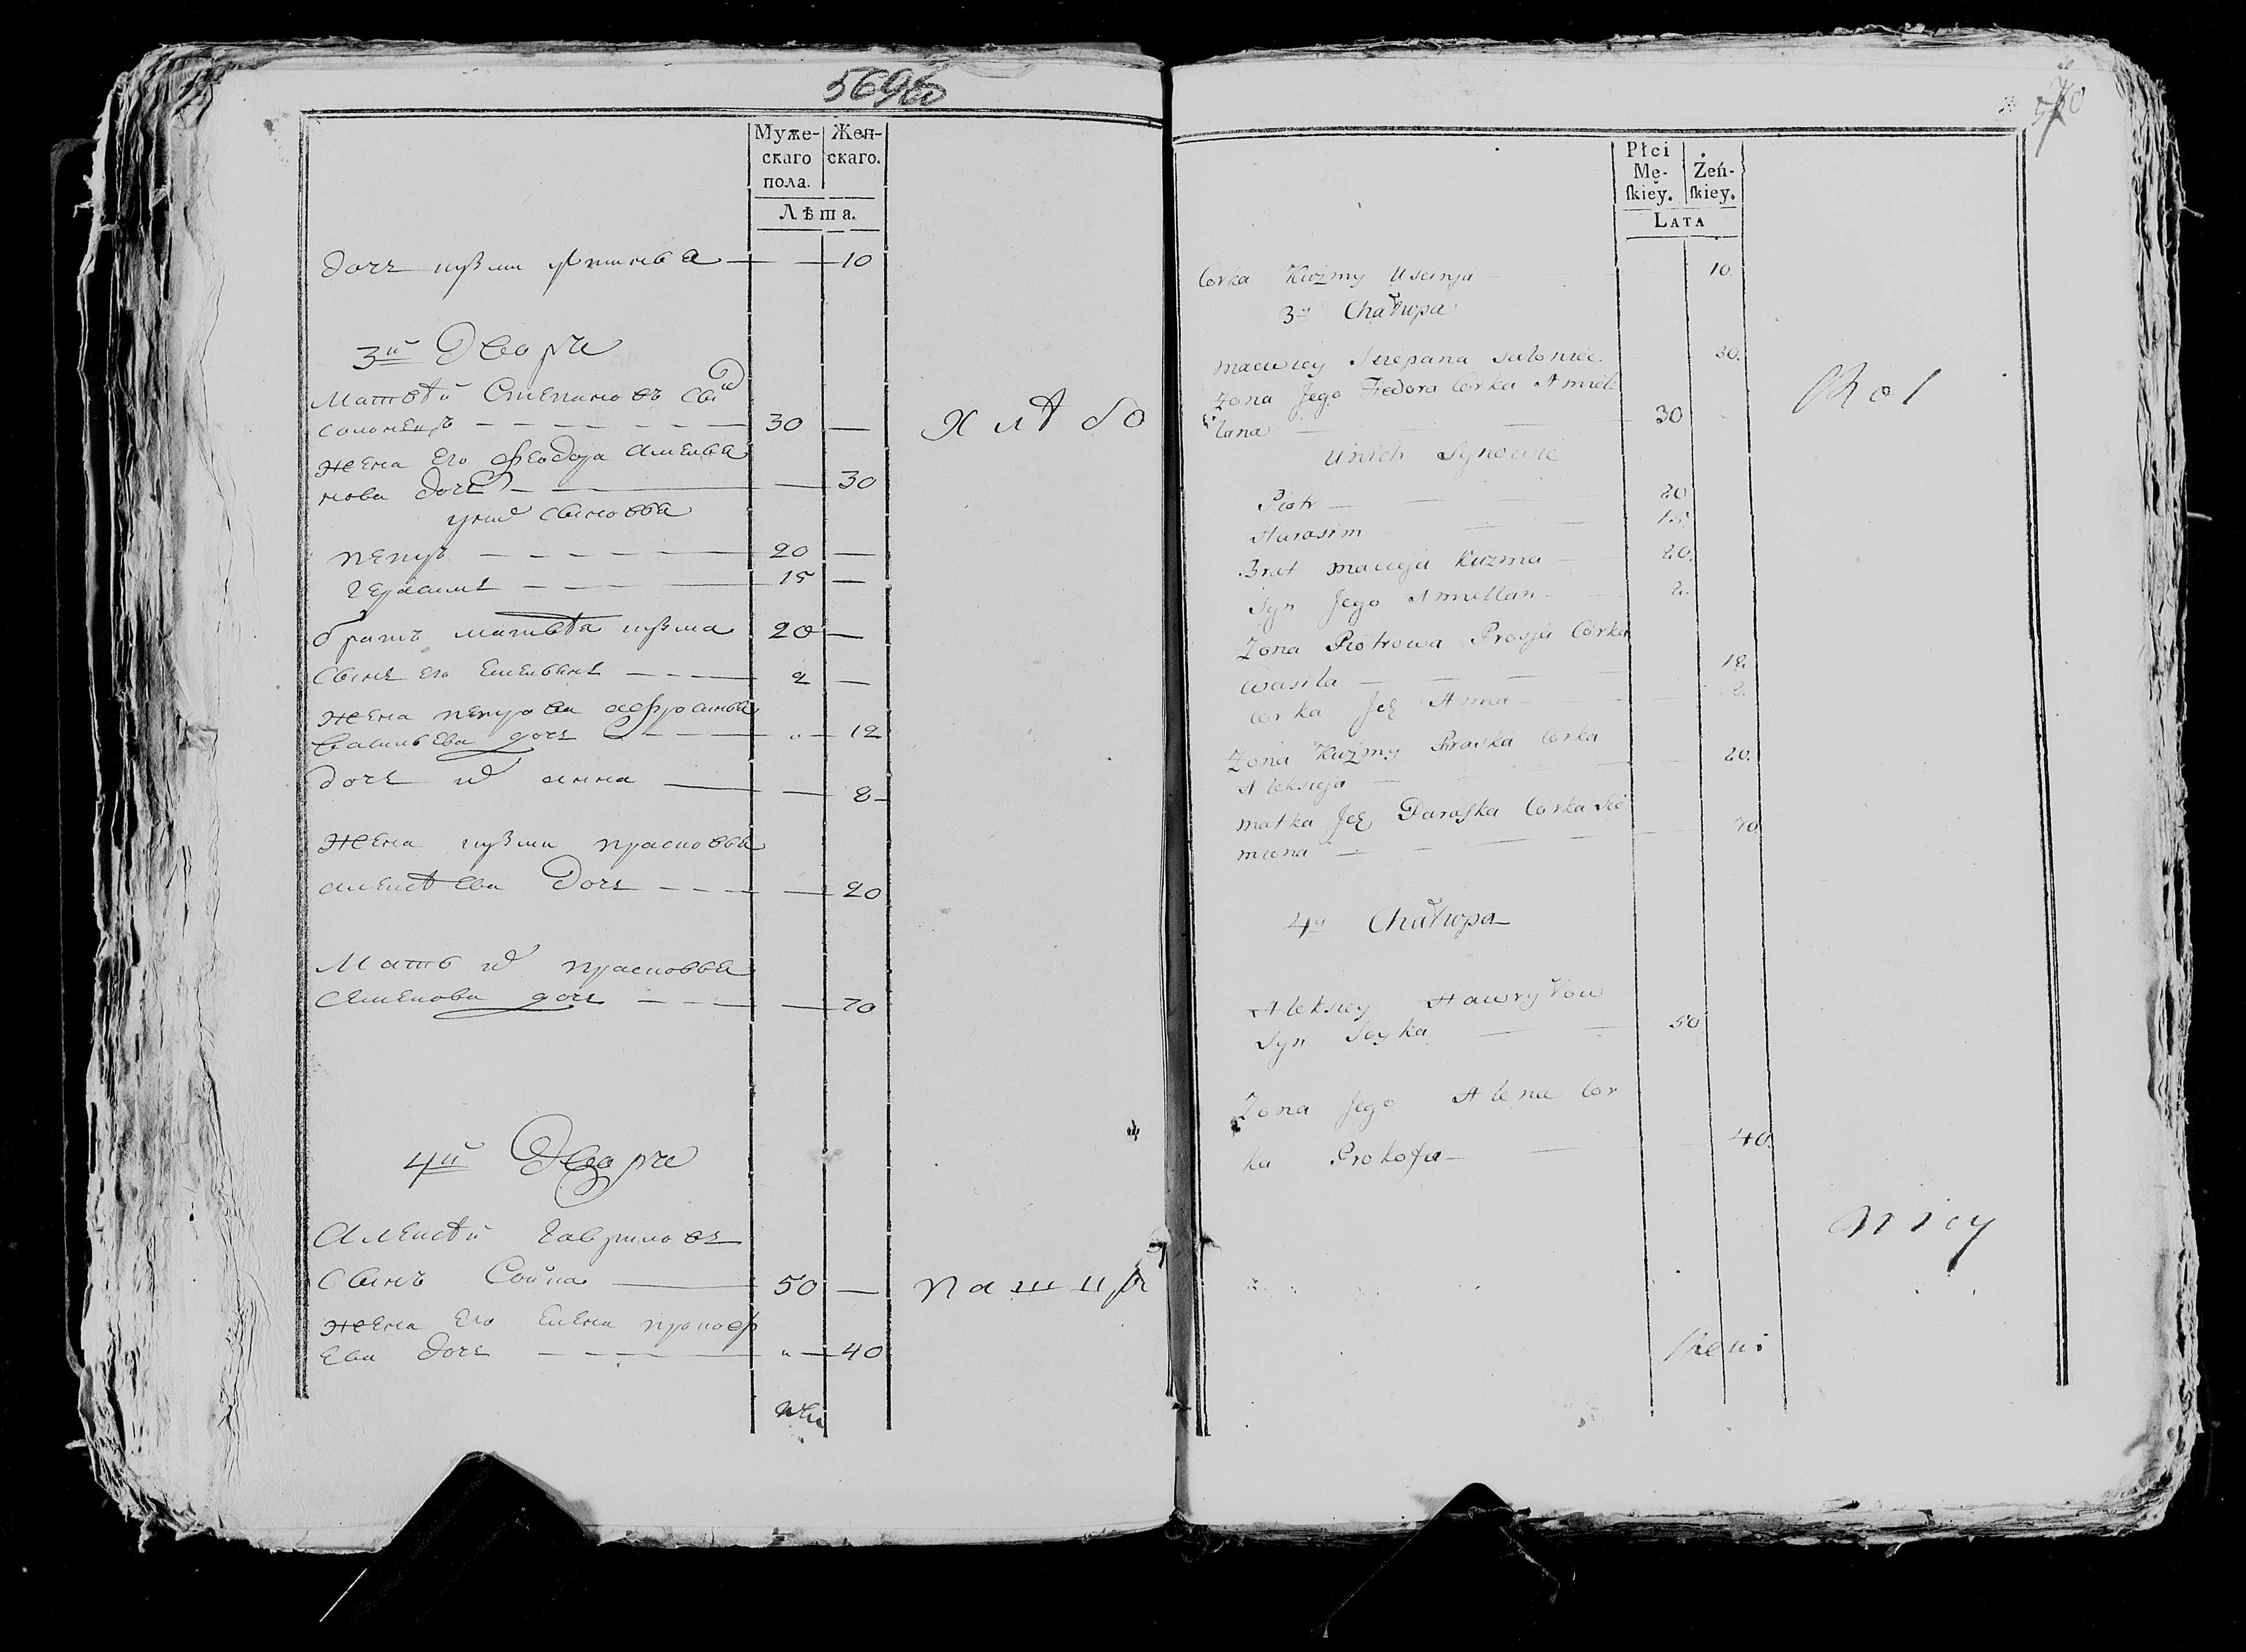 569об
Муже-
скаго
пола.
Жен-
скаго.
Лѣта.
дочь кузми устинья — — 10
3й Дворъ
Матвѣй Степановъ сынъ
солонецъ — — — 30 —
жена его феодора амелья
нова дочь — — 30
у них сыновья
петръ — — — 20 —
герасимъ — — — 15 —
братъ матвѣя кузма 20 —
сынъ его емельянъ — — — 2 —
жена петрова афросинья
васильева дочь — — — „ — 12
дочь их анна — — 8
жена кузми прасковья
алексѣева дочь — — — — 20
Мать их прасковья
семенова дочь — — — — 70
4й Дворъ
Алексѣй гавриловъ
сынъ Сойка — 50 —
жена его елена прокоф
ева дочь — — — „ — 40
Хлѣбо
пашцы
570
Płci
Mę-
skiey.
Żeń-
skiey.
LATA
Corka Kuźmy Usćinja — 10.
3a Chałupa
Maciwiey Sciepana Sałoniec. — 30.
Żona Jego Fiedora Corka Amiel
lana — — — 30 -
Unich Synowie
Piotr — — 20
Harasim — 15.
Brat macieja Kuzma — 20.
Syn Jego Amiellan — 2.
Żona Piotrowa Prosja Córka
Wasila — — — 12.
Corka Jeę Anna — 8.
Żona Kuźmy Praska Corka
Aleksieja — — 20.
matka Jeę Paraska Córka Sie
miona — — — 70.
4a Chałupa
Aleksiey Hawryłow
Syn Soyka — — 50
Żona Jego Alena Cor
ka Prokofa — — 40.
Rol
nicy